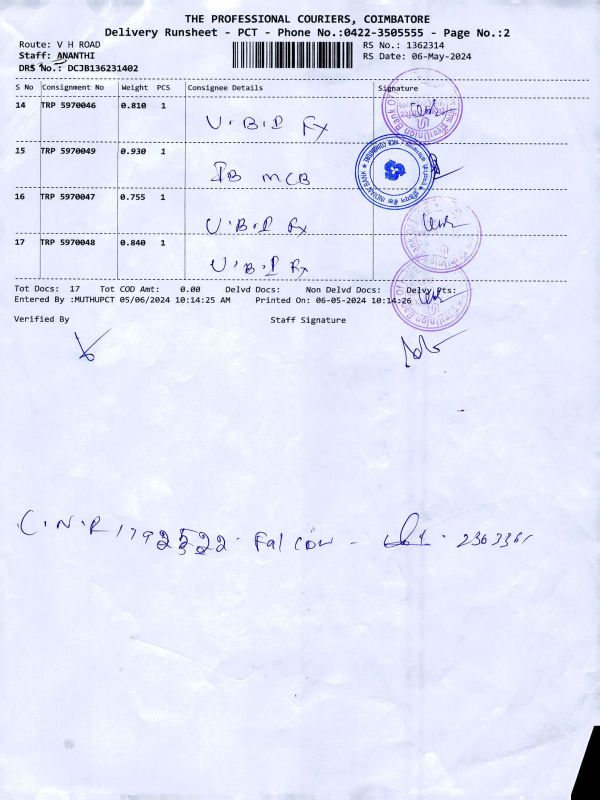 THE PROFESSIONAL COURIERS, COIMBATORE
Delivery Runsheet - PCT - Phone No.:0422-3505555 - Page No.:2
Route: V H ROAD RS No.: 1362314
Staff: ANANTHI RS Date: 06-May-2024
DRS No.: DCJB136231402
S No Consignment No Weight PCS Consignee Details Signature
14 TRP 5970046 0.810 1
U.B.I Fx
15 TRP 5970049 0.930 1
IB MCB
16 TRP 5970047 0.755 1
U.B.I Fx
17 TRP 5970048 0.840 1
U.B.I Fx
Tot Docs: 17 Tot COD Amt: 0.00 Delvd Docs: Non Delvd Docs: Delvy Pts:
Entered By :MUTHUPCT 05/06/2024 10:14:25 AM Printed On: 06-05-2024 10:14:26
Verified By Staff Signature
C.N.R Falcon -